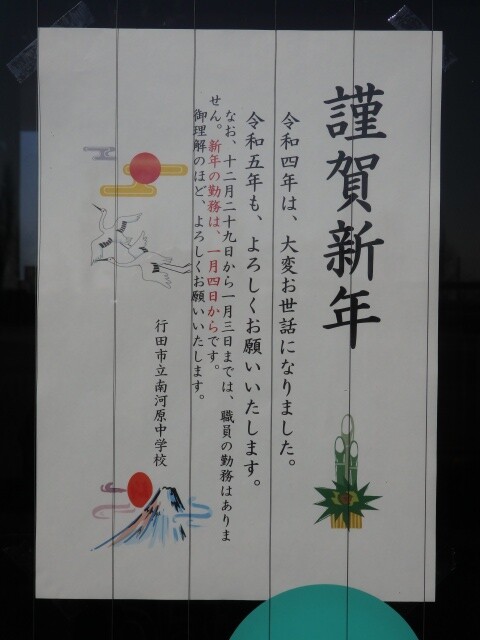 謹賀新年
令和四年は、大変お世話になりました。
令和五年も、よろしくお願いいたします。
なお、十二月二十九日から一月三日までは、職員の勤務はありま
せん。新年の勤務は、一月四日からです。
御理解のほど、よろしくお願いいたします。
行田市立南河原中学校